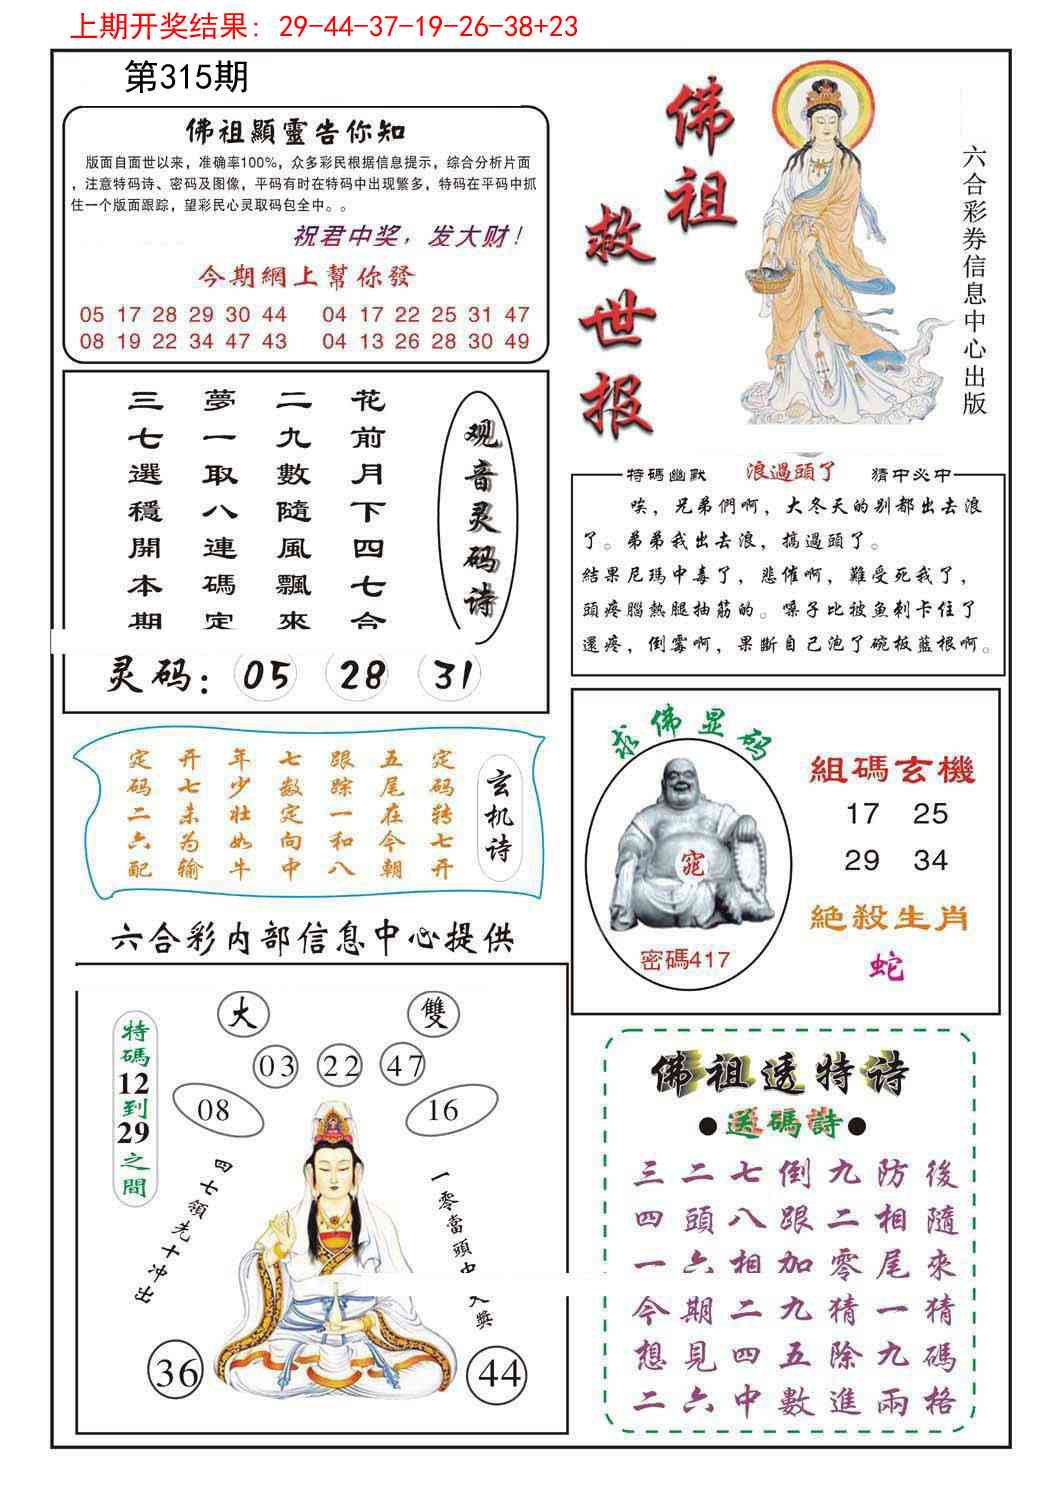 上期开奖结果: 29-44-37-19-26-38+23
第315期
佛祖顯靈告你知
版面自面世以来，准确率100%，众多彩民根据信息提示，综合分析片面
，注意特码诗、密码及图像，平码有时在特码中出现繁多，特码在平码中抓
住一个版面跟踪，望彩民心灵取码包全中。。
祝君中奖，发大财！
今期網上幫你發
05 17 28 29 30 44 04 17 22 25 31 47
08 19 22 34 47 43 04 13 26 28 30 49
佛祖
救世报
六合彩券信息中心出版
观音灵码诗
花前月下四七合
二九數隨風飄來
夢一取八連碼定
三七選穩開本期
灵码：05 28 31
特碼幽默 浪過頭了 猜中必中
唉，兄弟們啊，大冬天的别都出去浪
了。弟弟我出去浪，搞過頭了。
結果尼瑪中毒了，悲催啊，難受死我了，
頭疼腦熱腿抽筋的。嗓子比被魚刺卡住了
還疼，倒霉啊，果斷自己泡了碗板藍根啊。
玄机诗
定码转七开
五尾在今朝
跟踪一和八
七数定向中
年少壮如牛
开七未为输
定码二六配
求佛显码
密碼417
組碼玄機
17 25
29 34
絕殺生肖
蛇
六合彩内部信息中心提供
特碼12到29之間
大 雙
03 22 47
08 16
四七領先十冲出
一零當頭中大獎
36 44
佛祖透特诗
●送碼詩●
三二七倒九防後
四頭八跟二相隨
一六相加零尾來
今期二九猜一猜
想見四五除九碼
二六中數進兩格